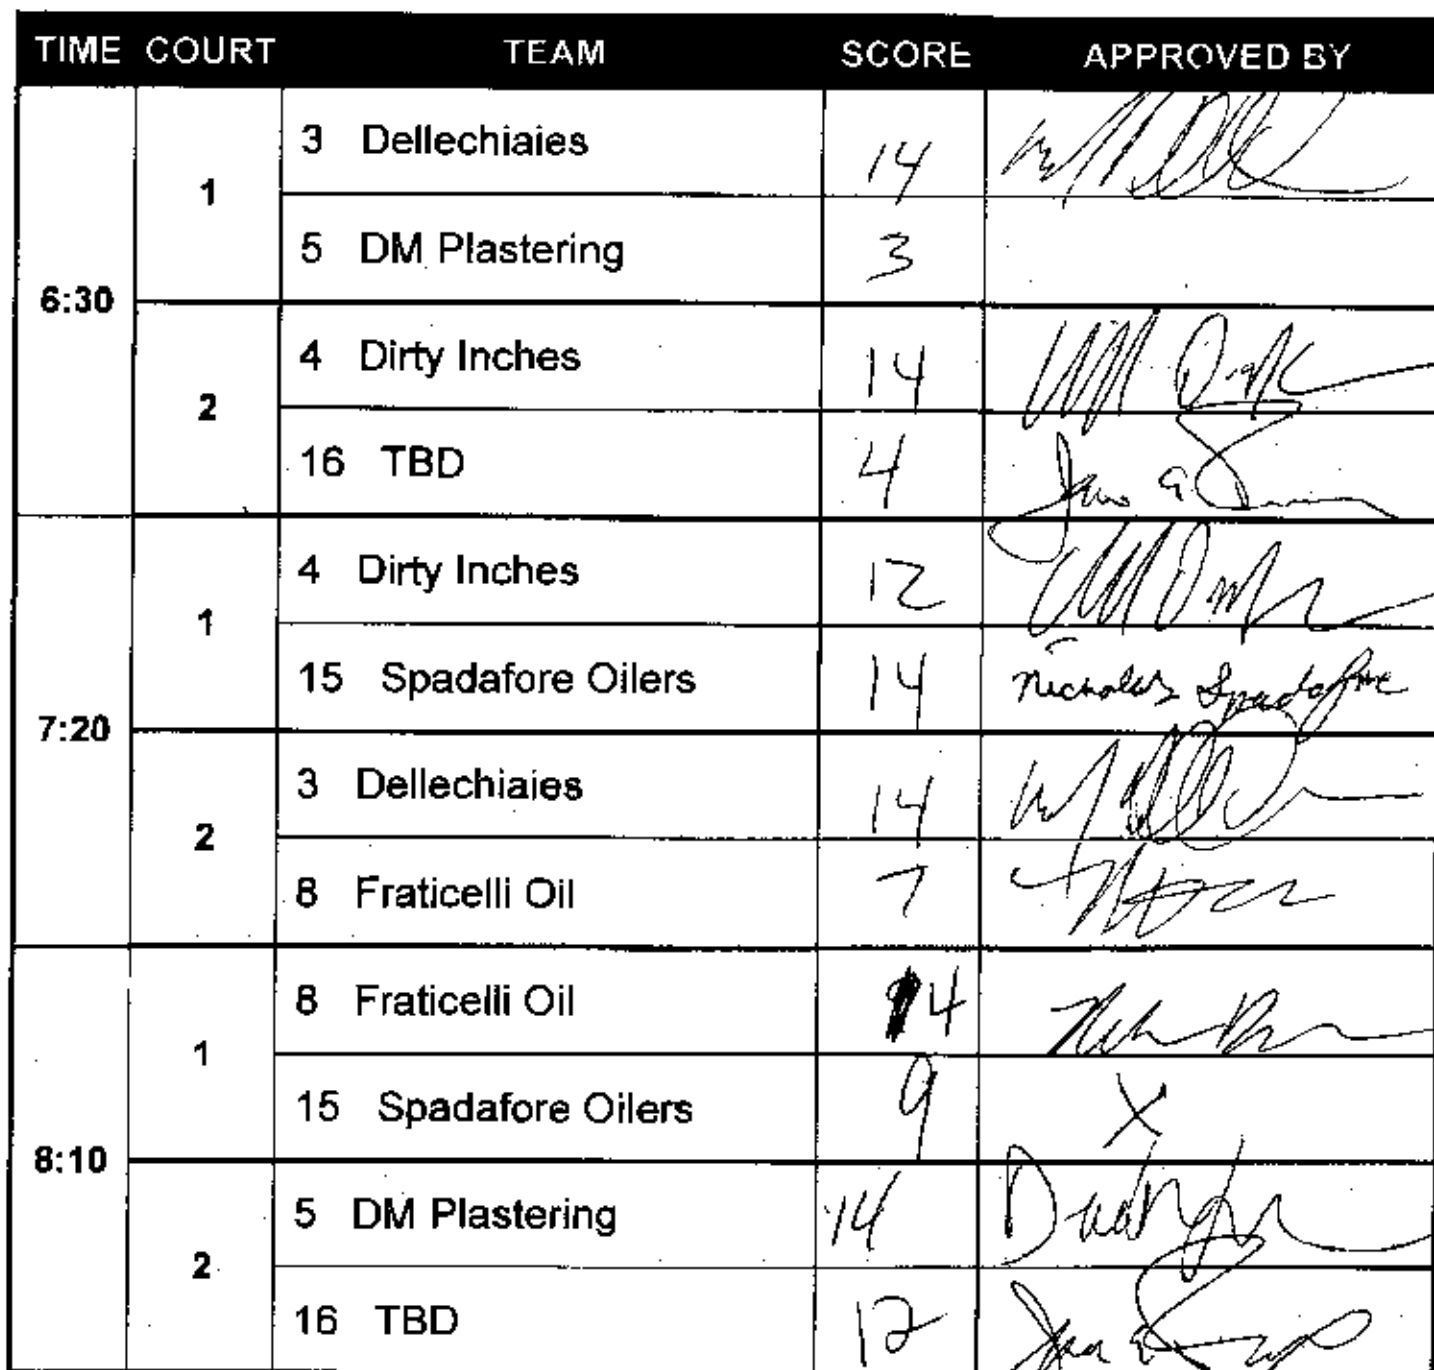 TIME COURT TEAM SCORE APPROVED BY
6:30 1 3 Dellechiaies 14
5 DM Plastering 3
2 4 Dirty Inches 14
16 TBD 4
7:20 1 4 Dirty Inches 12
15 Spadafore Oilers 14 Nicholas Spadafore
2 3 Dellechiaies 14
8 Fraticelli Oil 7
8:10 1 8 Fraticelli Oil 14
15 Spadafore Oilers 9 X
2 5 DM Plastering 14
16 TBD 12